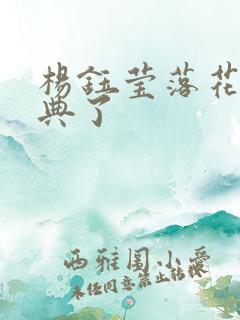 杨钰莹落花
典了
西雅图小爱
未经同意禁止转载